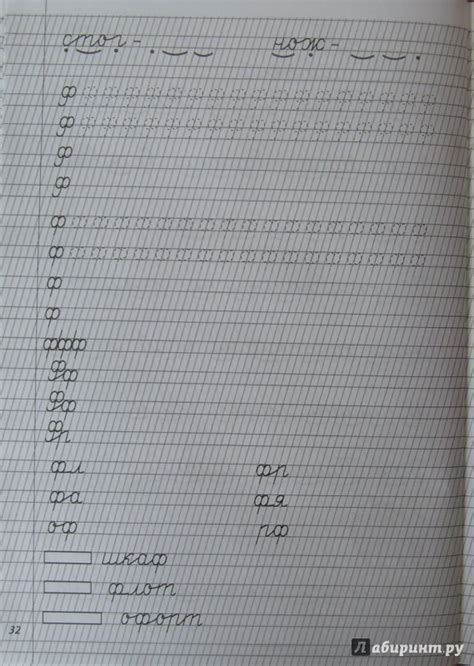 стог - нож -
ф ф ф ф ф ф ф ф ф ф ф ф ф ф ф ф ф
ф ф ф ф ф ф ф ф ф ф ф ф ф ф ф ф ф
ф
ф
ф ф ф ф ф ф ф ф ф ф ф ф ф ф ф ф ф
ф ф ф ф ф ф ф ф ф ф ф ф ф ф ф ф ф
ф
ф
ффф
фл фр
фа фя
оф рф
шкаф
флот
офорт
32
Лабиринт.ру